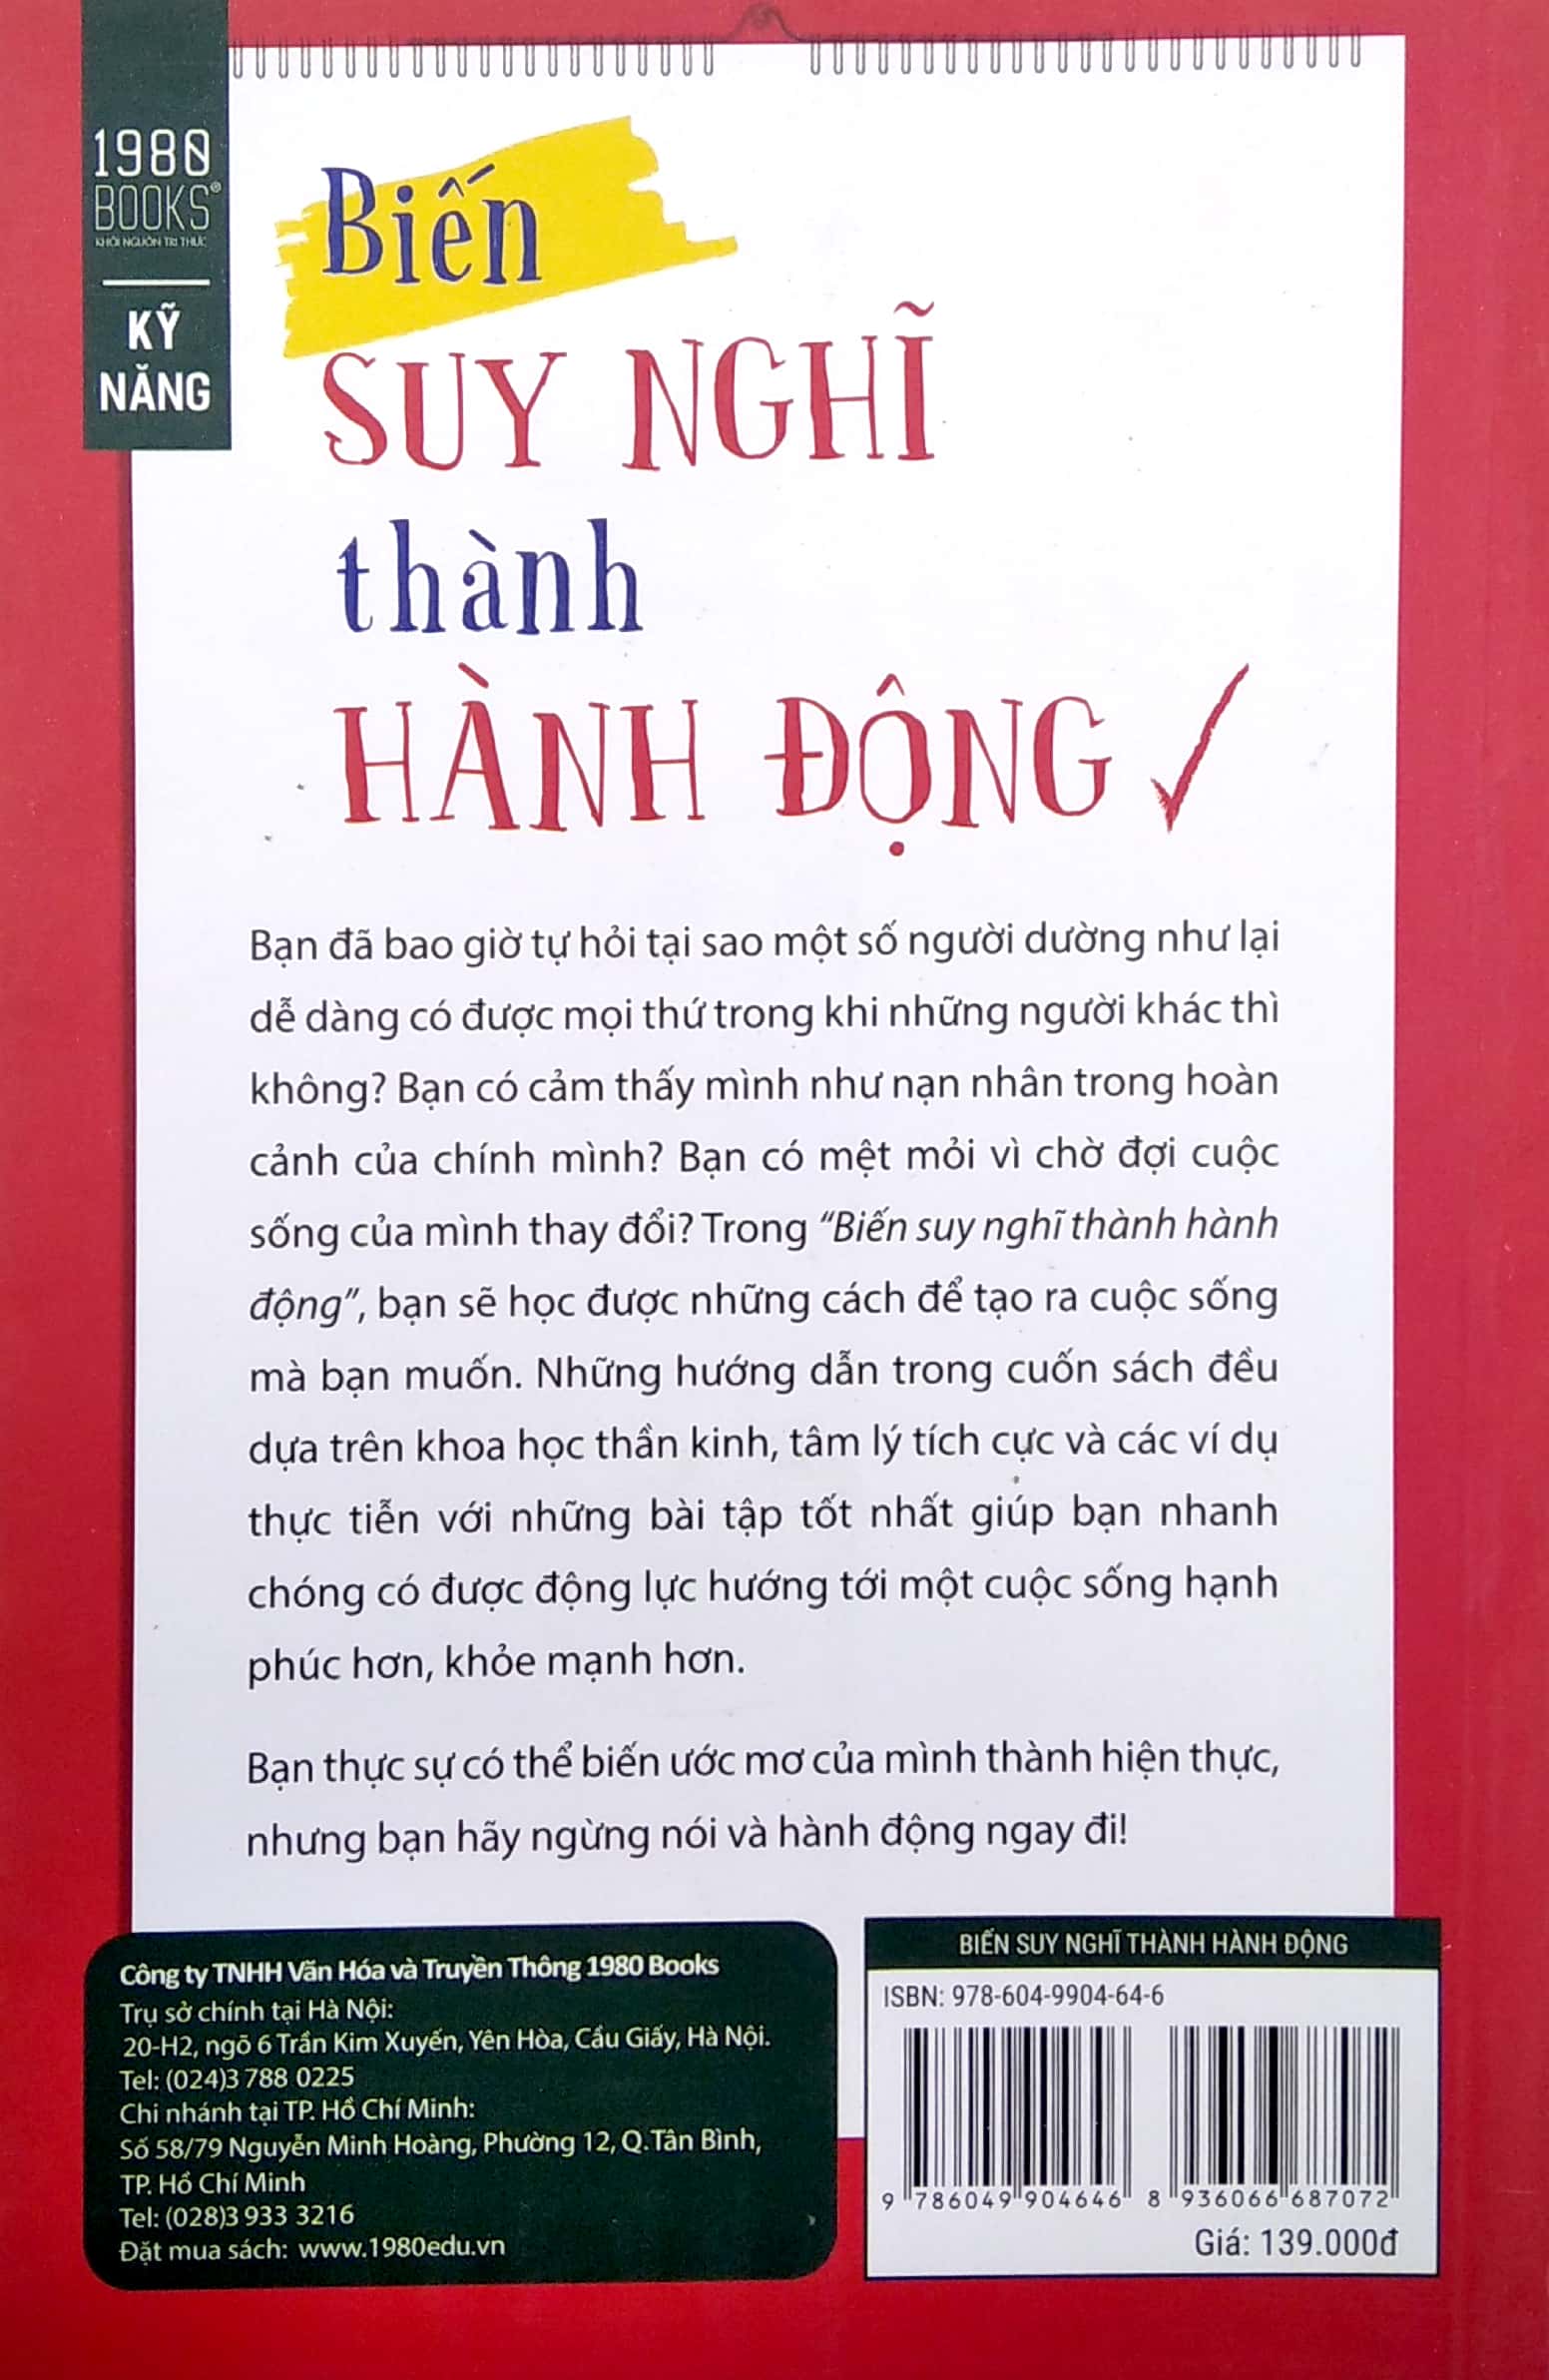 1980
BOOKS®
KHƠI NGUỒN TRI THỨC
KỸ
NĂNG
Biến
SUY NGHĨ
thành
HÀNH ĐỘNG
Bạn đã bao giờ tự hỏi tại sao một số người dường như lại
dễ dàng có được mọi thứ trong khi những người khác thì
không? Bạn có cảm thấy mình như nạn nhân trong hoàn
cảnh của chính mình? Bạn có mệt mỏi vì chờ đợi cuộc
sống của mình thay đổi? Trong “Biến suy nghĩ thành hành
động”, bạn sẽ học được những cách để tạo ra cuộc sống
mà bạn muốn. Những hướng dẫn trong cuốn sách đều
dựa trên khoa học thần kinh, tâm lý tích cực và các ví dụ
thực tiễn với những bài tập tốt nhất giúp bạn nhanh
chóng có được động lực hướng tới một cuộc sống hạnh
phúc hơn, khỏe mạnh hơn.
Bạn thực sự có thể biến ước mơ của mình thành hiện thực,
nhưng bạn hãy ngừng nói và hành động ngay đi!
Công ty TNHH Văn Hóa và Truyền Thông 1980 Books
Trụ sở chính tại Hà Nội:
20-H2, ngõ 6 Trần Kim Xuyến, Yên Hòa, Cầu Giấy, Hà Nội.
Tel: (024)3 788 0225
Chi nhánh tại TP. Hồ Chí Minh:
Số 58/79 Nguyễn Minh Hoàng, Phường 12, Q.Tân Bình,
TP. Hồ Chí Minh
Tel: (028)3 933 3216
Đặt mua sách: www.1980edu.vn
BIẾN SUY NGHĨ THÀNH HÀNH ĐỘNG
ISBN: 978-604-9904-64-6
9 786049 904646 8 936066 687072
Giá: 139.000đ